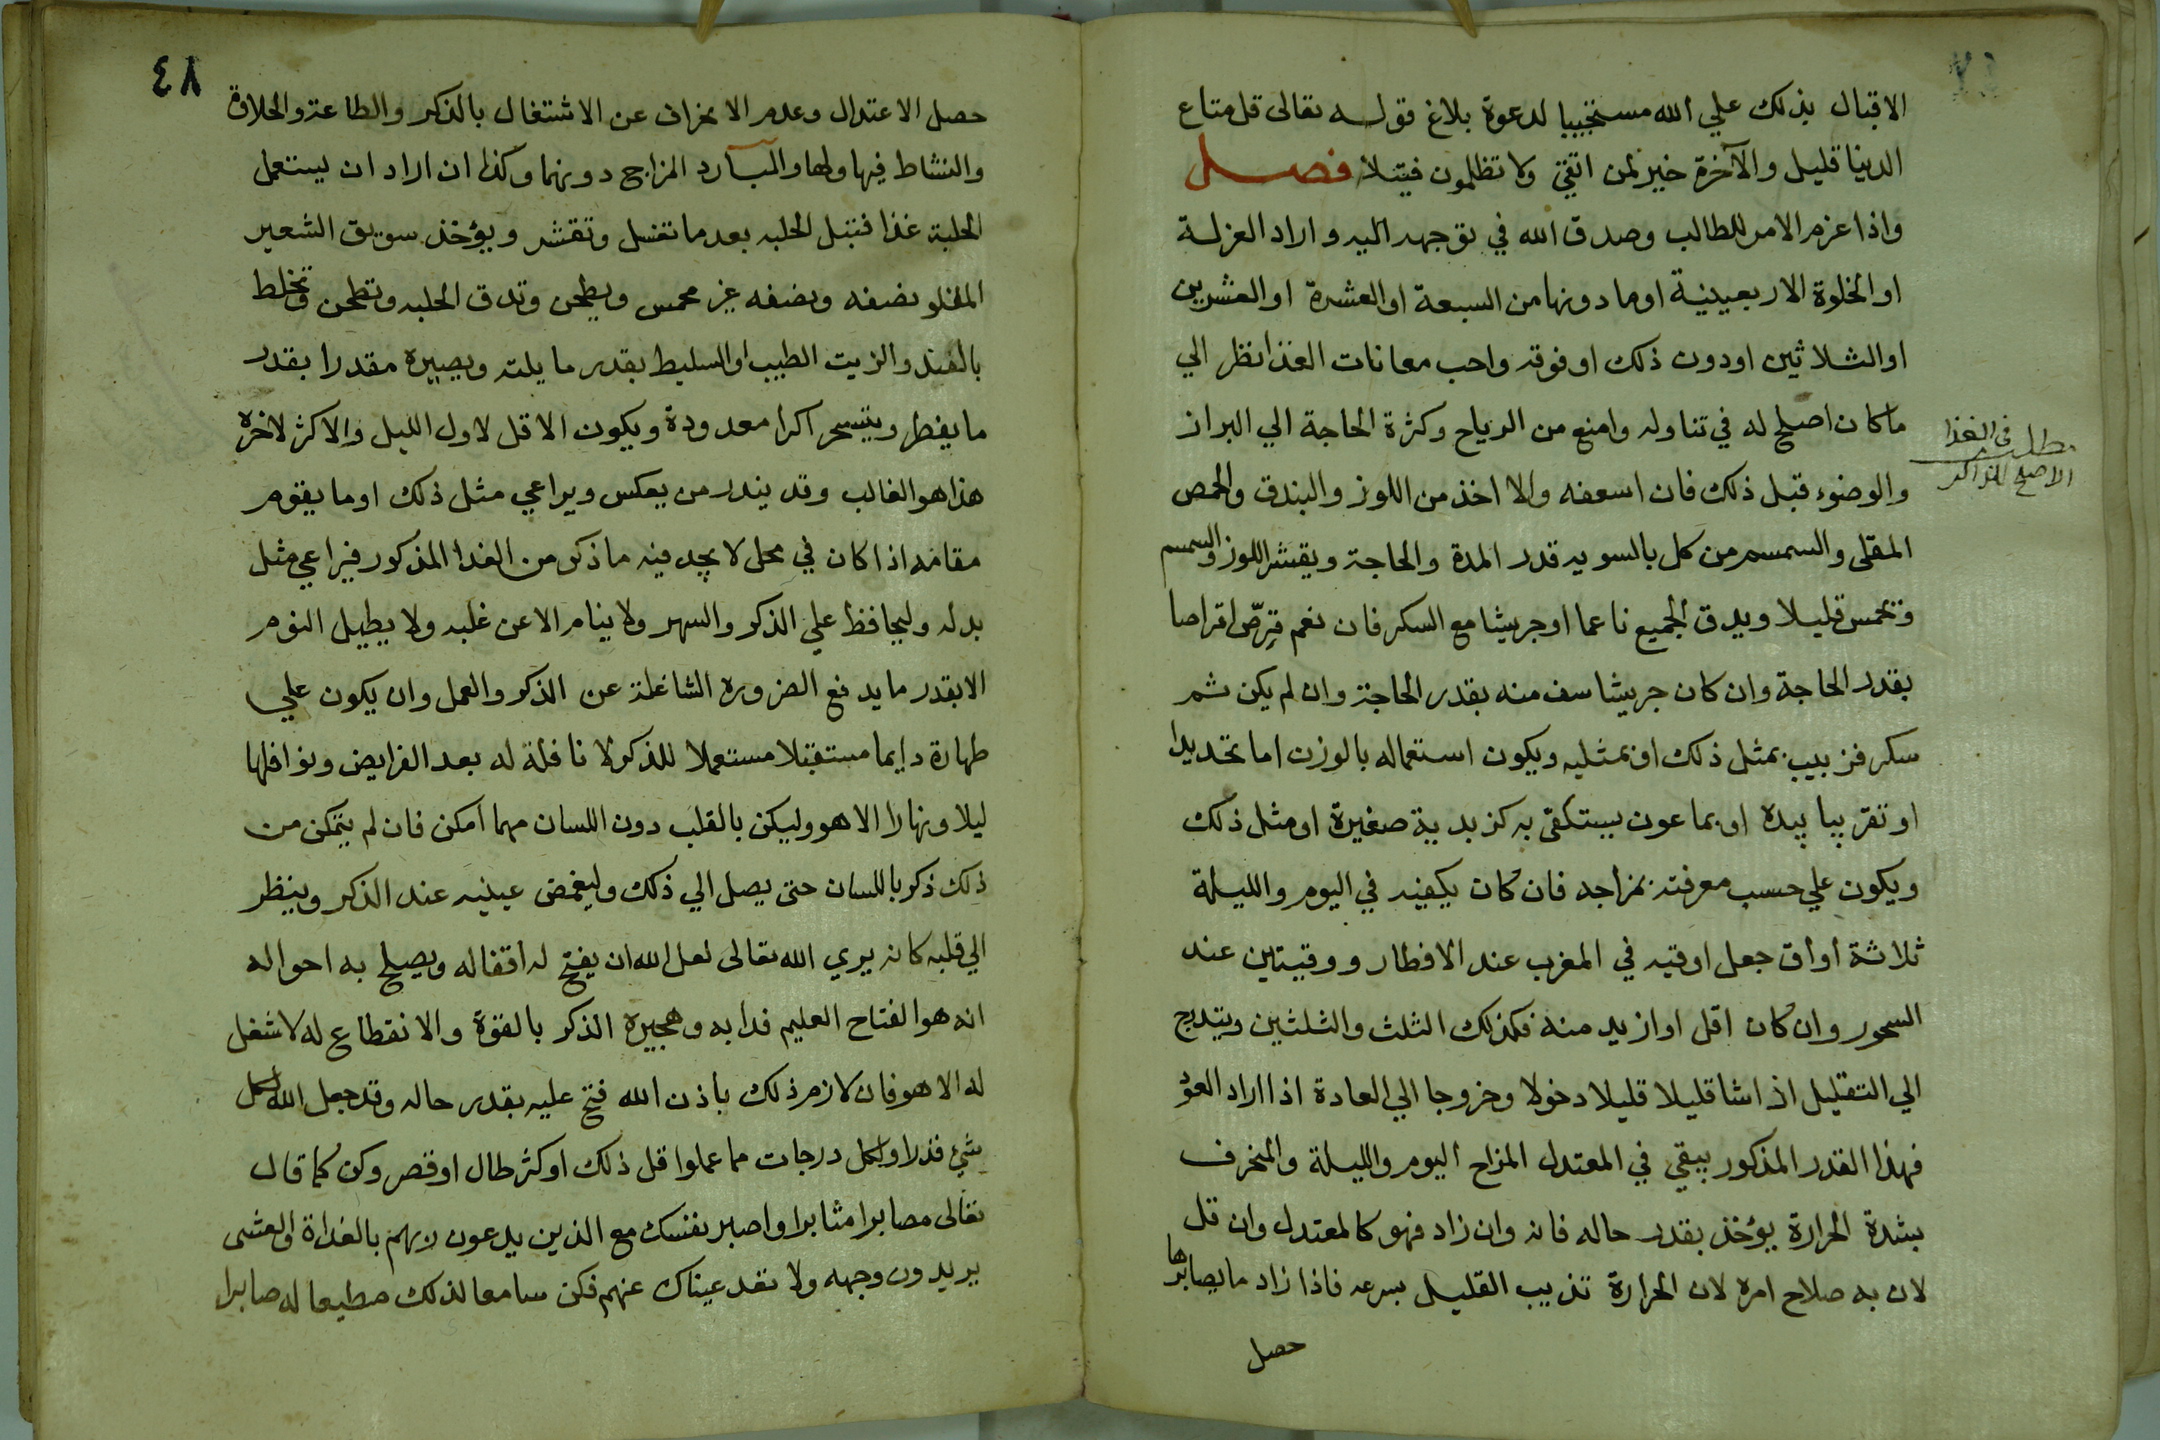 الاقبال بذلك علي الله مستجيبا لدعوة بلاغ قوله تعالى قل متاع
الدنيا قليل والآخرة خير لمن اتقى ولا تظلمون فتيلا فصل
واذا عزم الامر للطالب وصدق الله في توجهه اليه واراد العزلة
او الخلوة الاربعينية او ما دونها من السبعة او العشرة او العشرين
او الثلاثين او دون ذلك او فوقه واحب معانات الغذا نظر الي
ما كان اصلح له في تناوله وامنع من الرياح وكثرة الحاجة الي البراز
والوضوء قبل ذلك فان اسعفه والا اخذ من اللوز والبندق والحمص
المقلى والسمسم من كل بالسويه قدر المدة والحاجة ويقشر اللوز والسمسم
وتحمس قليلا ويدق الجميع ناعما او جريشا مع السكر فان نعم قرّص اقراصا
بقدر الحاجة وان كان جريشا سف منه بقدر الحاجة وان لم يكن ثم
سكر فزبيب بمثل ذلك او بمثليه ويكون استعماله بالوزن اما تحديدا
او تقريبا بيده او بماعون يستكفي به كزبدية صغيرة او مثل ذلك
ويكون علي حسب معرفته بمزاجه فان كان يكفيه في اليوم والليلة
ثلاثة أواق جعل اوقيه في المغرب عند الافطار ووقيتين عند
السحور وان كان اقل او ازيد منه فكذلك الثلث والثلثين ويتدرج
الي التقليل اذا شا قليلا قليلا دخولا وخروجا الي العادة اذا اراد العود
فهذا القدر المذكور يبقي في المعتدل المزاج اليوم والليلة والمنحرف
بشدة الحرارة يؤخذ بقدر حاله فانه وان زاد فهو كالمعتدل وان قل
لان به صلاح امره لان الحرارة تذيب القليل بسرعه فاذا زاد ما يصابرها
حصل
مطلب في الغذا
الاصلح للذاكر
٨٤
حصل الاعتدال وعدم الانحراف عن الاشتغال بالذكر والطاعة والحلاوة
والنشاط فيها ولها والبارد المزاج دونهما وكذا ان اراد ان يستعمل
الحلبة غذا فتبل الحلبه بعد ما تغسل وتقشر ويؤخذ سويق الشعير
المقلو نصفه ونصفه غير محمس ويطحن وتدق الحلبه وتطحن وتخلط
بالقند والزيت الطيب او السليط بقدر ما يلته ويصيره مقدرا بقدر
ما يفطر ويتسحر اكرا معدودة ويكون الاقل لاول الليل والاكثر لاخره
هذا هو الغالب وقد يندر من يعكس ويراعي مثل ذلك او ما يقوم
مقامه اذا كان في محل لا يجد فيه ما ذكر من الغدا المذكور فيراعي مثل
بدله وليحافظ علي الذكر والسهر ولا ينام الا عن غلبه ولا يطيل النوم
الا بقدر ما يدفع الضروره الشاغلة عن الذكر والعمل وان يكون علي
طهارة دايما مستقبلا مستعملا للذكر لا نافلة له بعد الفرايض ونوافلها
ليلا ونهارا الا هو وليكن بالقلب دون اللسان مهما امكن فان لم يتمكن من
ذلك ذكر باللسان حتى يصل الي ذلك وليغمض عينيه عند الذكر وينظر
الي قلبه كانه يري الله تعالى لعل الله ان يفتح له اقفاله ويصلح به احواله
انه هو الفتاح العليم فدابه وهجيره الذكر بالقوة والانقطاع له لا شغل
له الا هو فان لازم ذلك باذن الله فتح عليه بقدر حاله وقد جعل الله لكل
شئ قدرا ولكل درجات مما عملوا قل ذلك او كثر طال او قصر وكن كما قال
تعالى مصابرا مثابرا واصبر نفسك مع الذين يدعون ربهم بالغداة والعشى
يريدون وجهه ولا تعد عيناك عنهم فكن سامعا لذلك مطيعا له صابرا